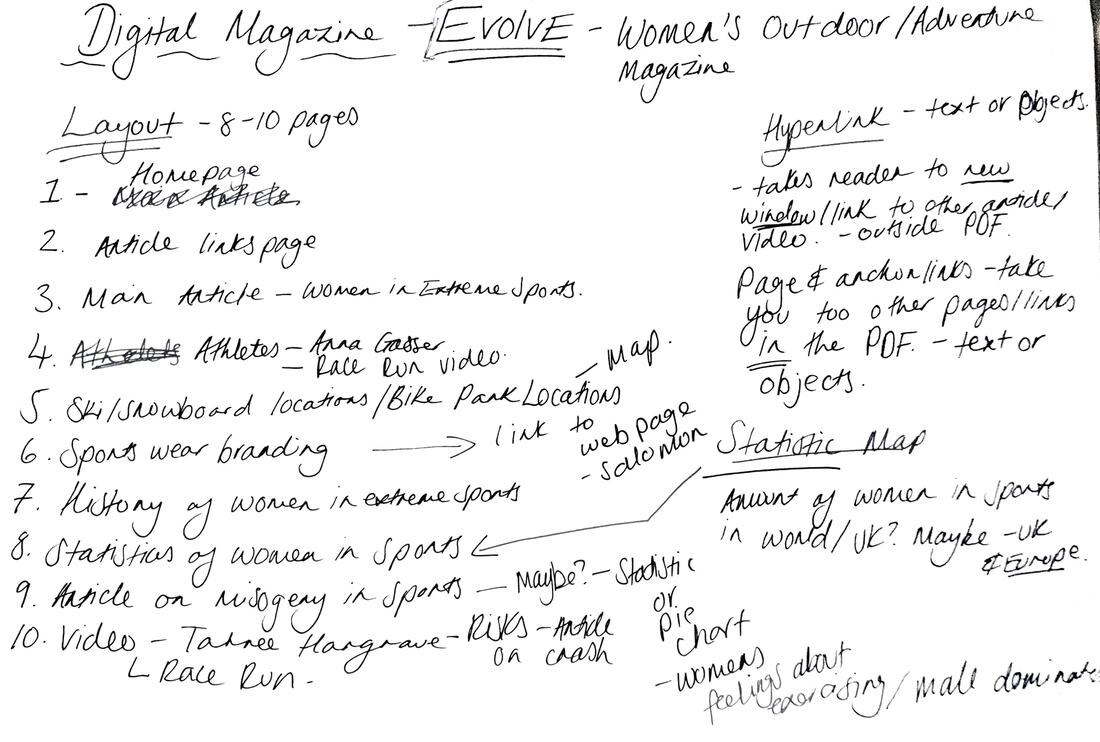 Digital Magazine - EVOLVE - Women's Outdoor/Adventure
Magazine
Layout - 8-10 pages
1 - Homepage
2. Article links page
3. Main Article - Women in Extreme Sports.
4. Athletes - Anna Gasser
- Race Run video.
5. Ski/Snowboard locations/Bike Park Locations - Map.
6. Sports wear branding → link to
webpage
- Salomon
7. History of women in extreme sports
8. Statistics of women in Sports
9. Article on misogeny in Sports - Maybe? - Statistic
or
Pie
Chart
- womens
feelings about
exercising/male dominate
10. Video - Tahnee Hargrave - Risks - Article
on crash
Race Run -
Hyperlink - text or objects.
- takes reader to new
window/link to other article/
video. - outside PDF.
Page & anchor links - take
you too other pages/links
in the PDF. - text or
objects.
Statistic Map
Amount of women in sports
in world/UK? Maybe - UK
& Europe.